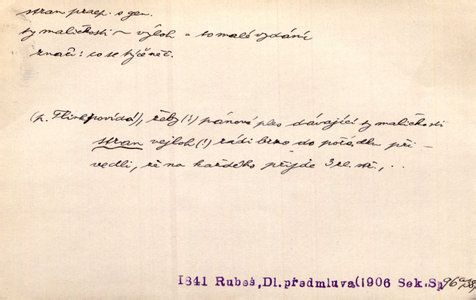 stran praep. s gen.
ty maličkosti ~ výloh = to malé vydání
značí: co se týče něč.
(p. Flink povídal), žeby (!) pánové ples dávající ty maličkosti
stran vejloh (!) rádi brzo do pořádku při-
vedli, že na každého přijde 3 zl. stř., . .
1841 Rubeš, Dl. předmluva (1906 Sek. Sp